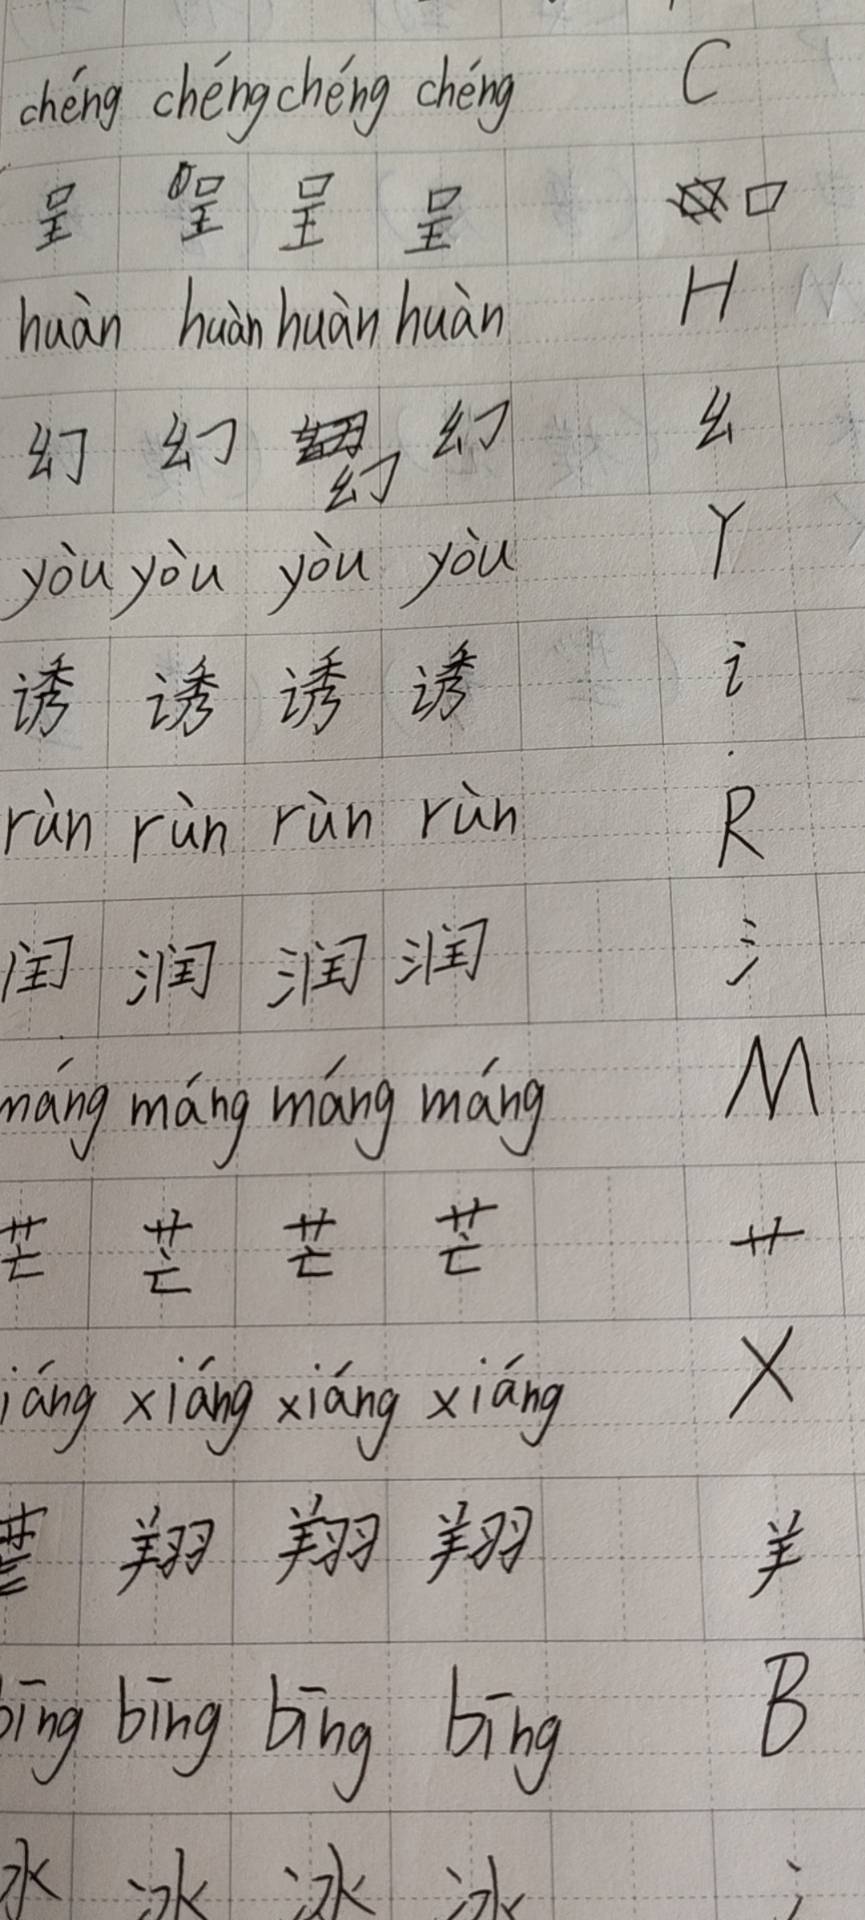 chéng chéng chéng chéng C
呈 呈 呈 呈 口
huàn huàn huàn huàn H
幻 幻 幻 幻 幺
yòu yòu yòu yòu Y
诱 诱 诱 诱 讠
rùn rùn rùn rùn R
润 润 润 润 氵
máng máng máng máng M
芒 芒 芒 芒 艹
iáng xiáng xiáng xiáng X
翔 翔 翔 羊
bīng bīng bīng bīng B
冰 冰 冰 冰 冫